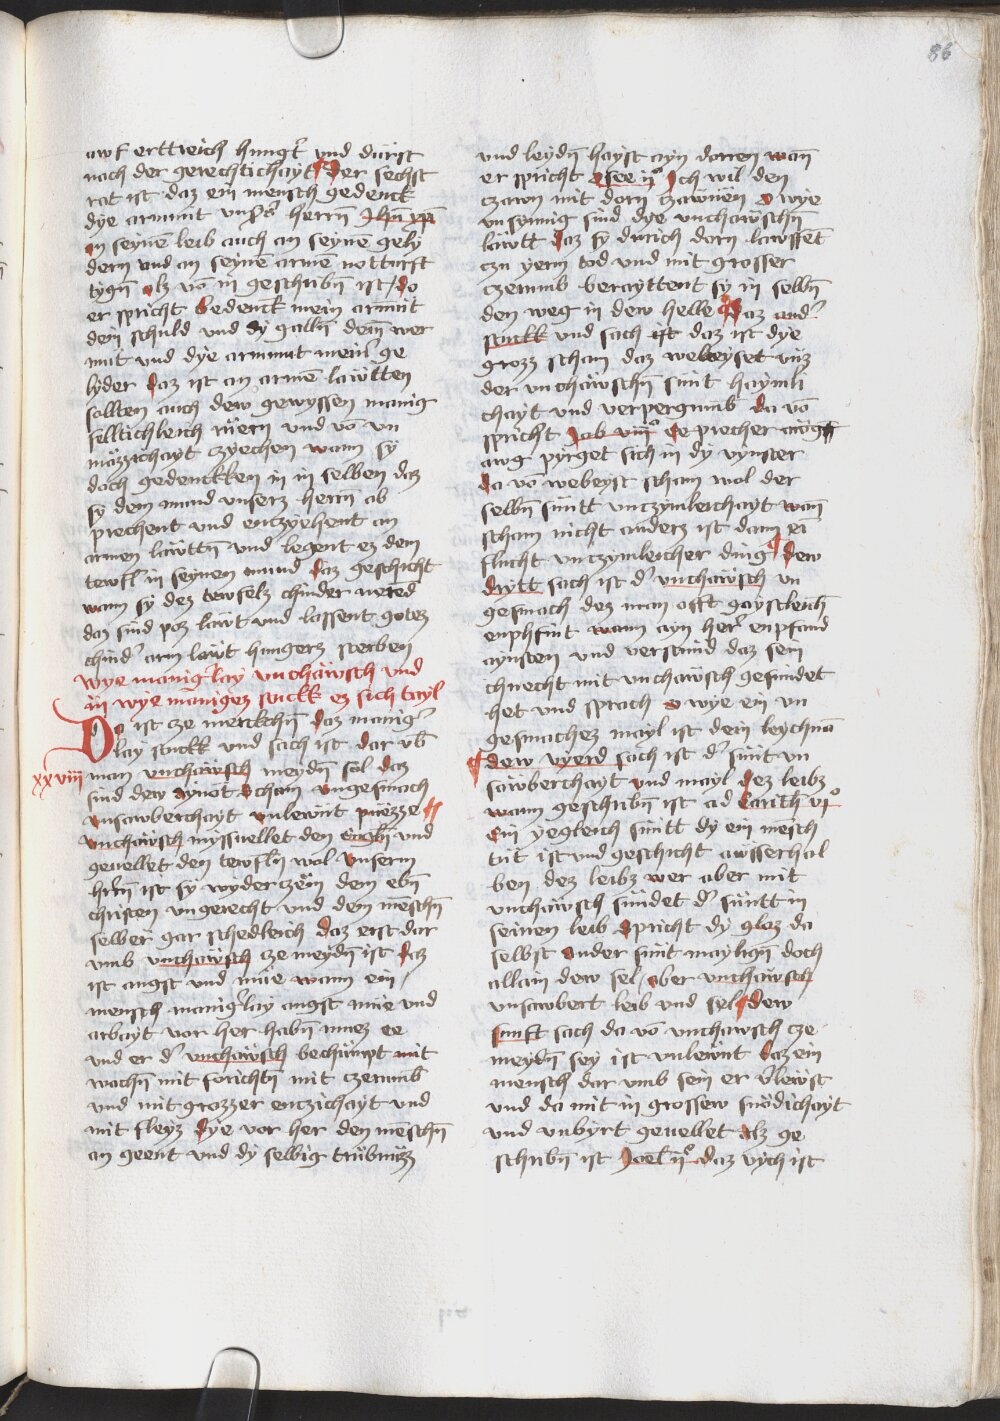 86
awf erttreich hungt̄ vnd dürst
nach der gerechtichayt Der sechst
rat ist daz ein mensch gedenck
dye armut vnsers herrn̄ Jhū xp̄i
in seynē leib auch an seynē gely
dern vnd an seynē armē notturft
tygn̄ alz vō in geschribn̄ ist / do
er spricht Bedenck mein armüt
dein schuld vnd dy galln̄ dein wer
mut vnd dye armmut meinr̄ ge
lyder Daz ist an armē läwtten
sollten auch dew gewyssen manig
selltichleich rüern vnd vō vn
mäzzichayt czyechen wann sy
doch gedenckken in in selben daz
sy dem mund vnserz herrn ab
prechent vnd enczyehent an
armen läwttn̄ vnd legent ez dem
tewfl̄ in seynen mund Daz geschicht
wann sy dez tewfelz chinder
daz sind poz läwt vnd lassent gotez
chind' arm läwt hungerz sterben
wye manigr̄lay vnchäwsch vnd
in wye manigez stuckk ez sich tayl
Da ist cze merckchn̄ Daz manigr̄
lay stuckk vnd sach ist dar vb̄
xxviij man vnchäwsch meydn̄ sol daz
sind dew aynöt scham vngesmach
vnsawberchayt vnlewnt puezze
vnchäwsch myssuellet den engln̄ vnd
geuellet den tewfln̄ wol vnserm
hrrn̄ ist sy wyderczēm dem ebn̄
christen vngerecht vnd dem meschn̄
selber gar schedleich Daz erst dar
vmb vnchäwsch cze meydn̄ ist Daz
ist angst vnd müe wann ein
mensch manigr̄lay angst müe vnd
arbayt vor her habn̄ muez ee
vnd er d' vnchäwsch bechümpt mit
wachn̄ mit forichtn̄ mit czerunb̄
vnd mit grozzer enczichayt vnd
mit fleyz Dye vor her den mēschn̄
an geent vnd dy selbig trübnüzz
vnd leydn̄ hayst ayn dorren wan̄
er spricht Osee ij° Jch wil den
czawn mit dorn czäwnen O wye
vnsynnig sind dye vnchäwschn̄
läwtt Daz sy durich dorn lawffēt
czu yerm tod vnd mit grosser
czerunb berayttent sy in selbn̄
den weg in dew helle Daz and'
stuckk vnd sach ist daz ist dye
grozz scham daz webeyset vnz
der vnchäwschn̄ sünt haymli
chayt vnd verpergunb̄ da vō
spricht Job xxiiij° Eeprecher awg
awg pyrget sich in dy vynster
Da vō webeyst scham wol der
selbn̄ süntt vnczymleichayt wan̄
scham nicht anderz ist dann ein̄
flucht vnczymleicher ding Dew
drytt sach ist d' vnchäwsch vn
gesmach dez man offt gaystleich
enphint wann ayn her̄ enpfand
aynsten vnd verstund daz sein
chnecht mit vnchäwsch gesündet
het vnd sprach O wye ein vn
gesmachez mayl ist dein leychnā
dew vyerd sach ist d' sünt vn
sawberchayt vnd mayl Dez leibz
wann geschribn̄ ist ad Corinth vj°
Ein yegleich süntt dy ein mēsch
tüt ist vnd geschicht awsserhal
ben dez leibz wer aber mit
vnchäwsch sündet d' süntt in
seinen leib Spricht dy gloz da
selbst Ander sünt maylign̄ doch
allain dew sel / aber vnchäwsch
vnsawbert leib vnd sel Dew
funft sach da vō vnchawsch cze
meydn̄ sey ist vnlewnt Daz ein
mensch dar vmb sein er v̄lewst
vnd da mit in grossew snödichayt
vnd vnbyrt geuellet Alz ge
schribn̄ ist Joel ij° Daz vych ist